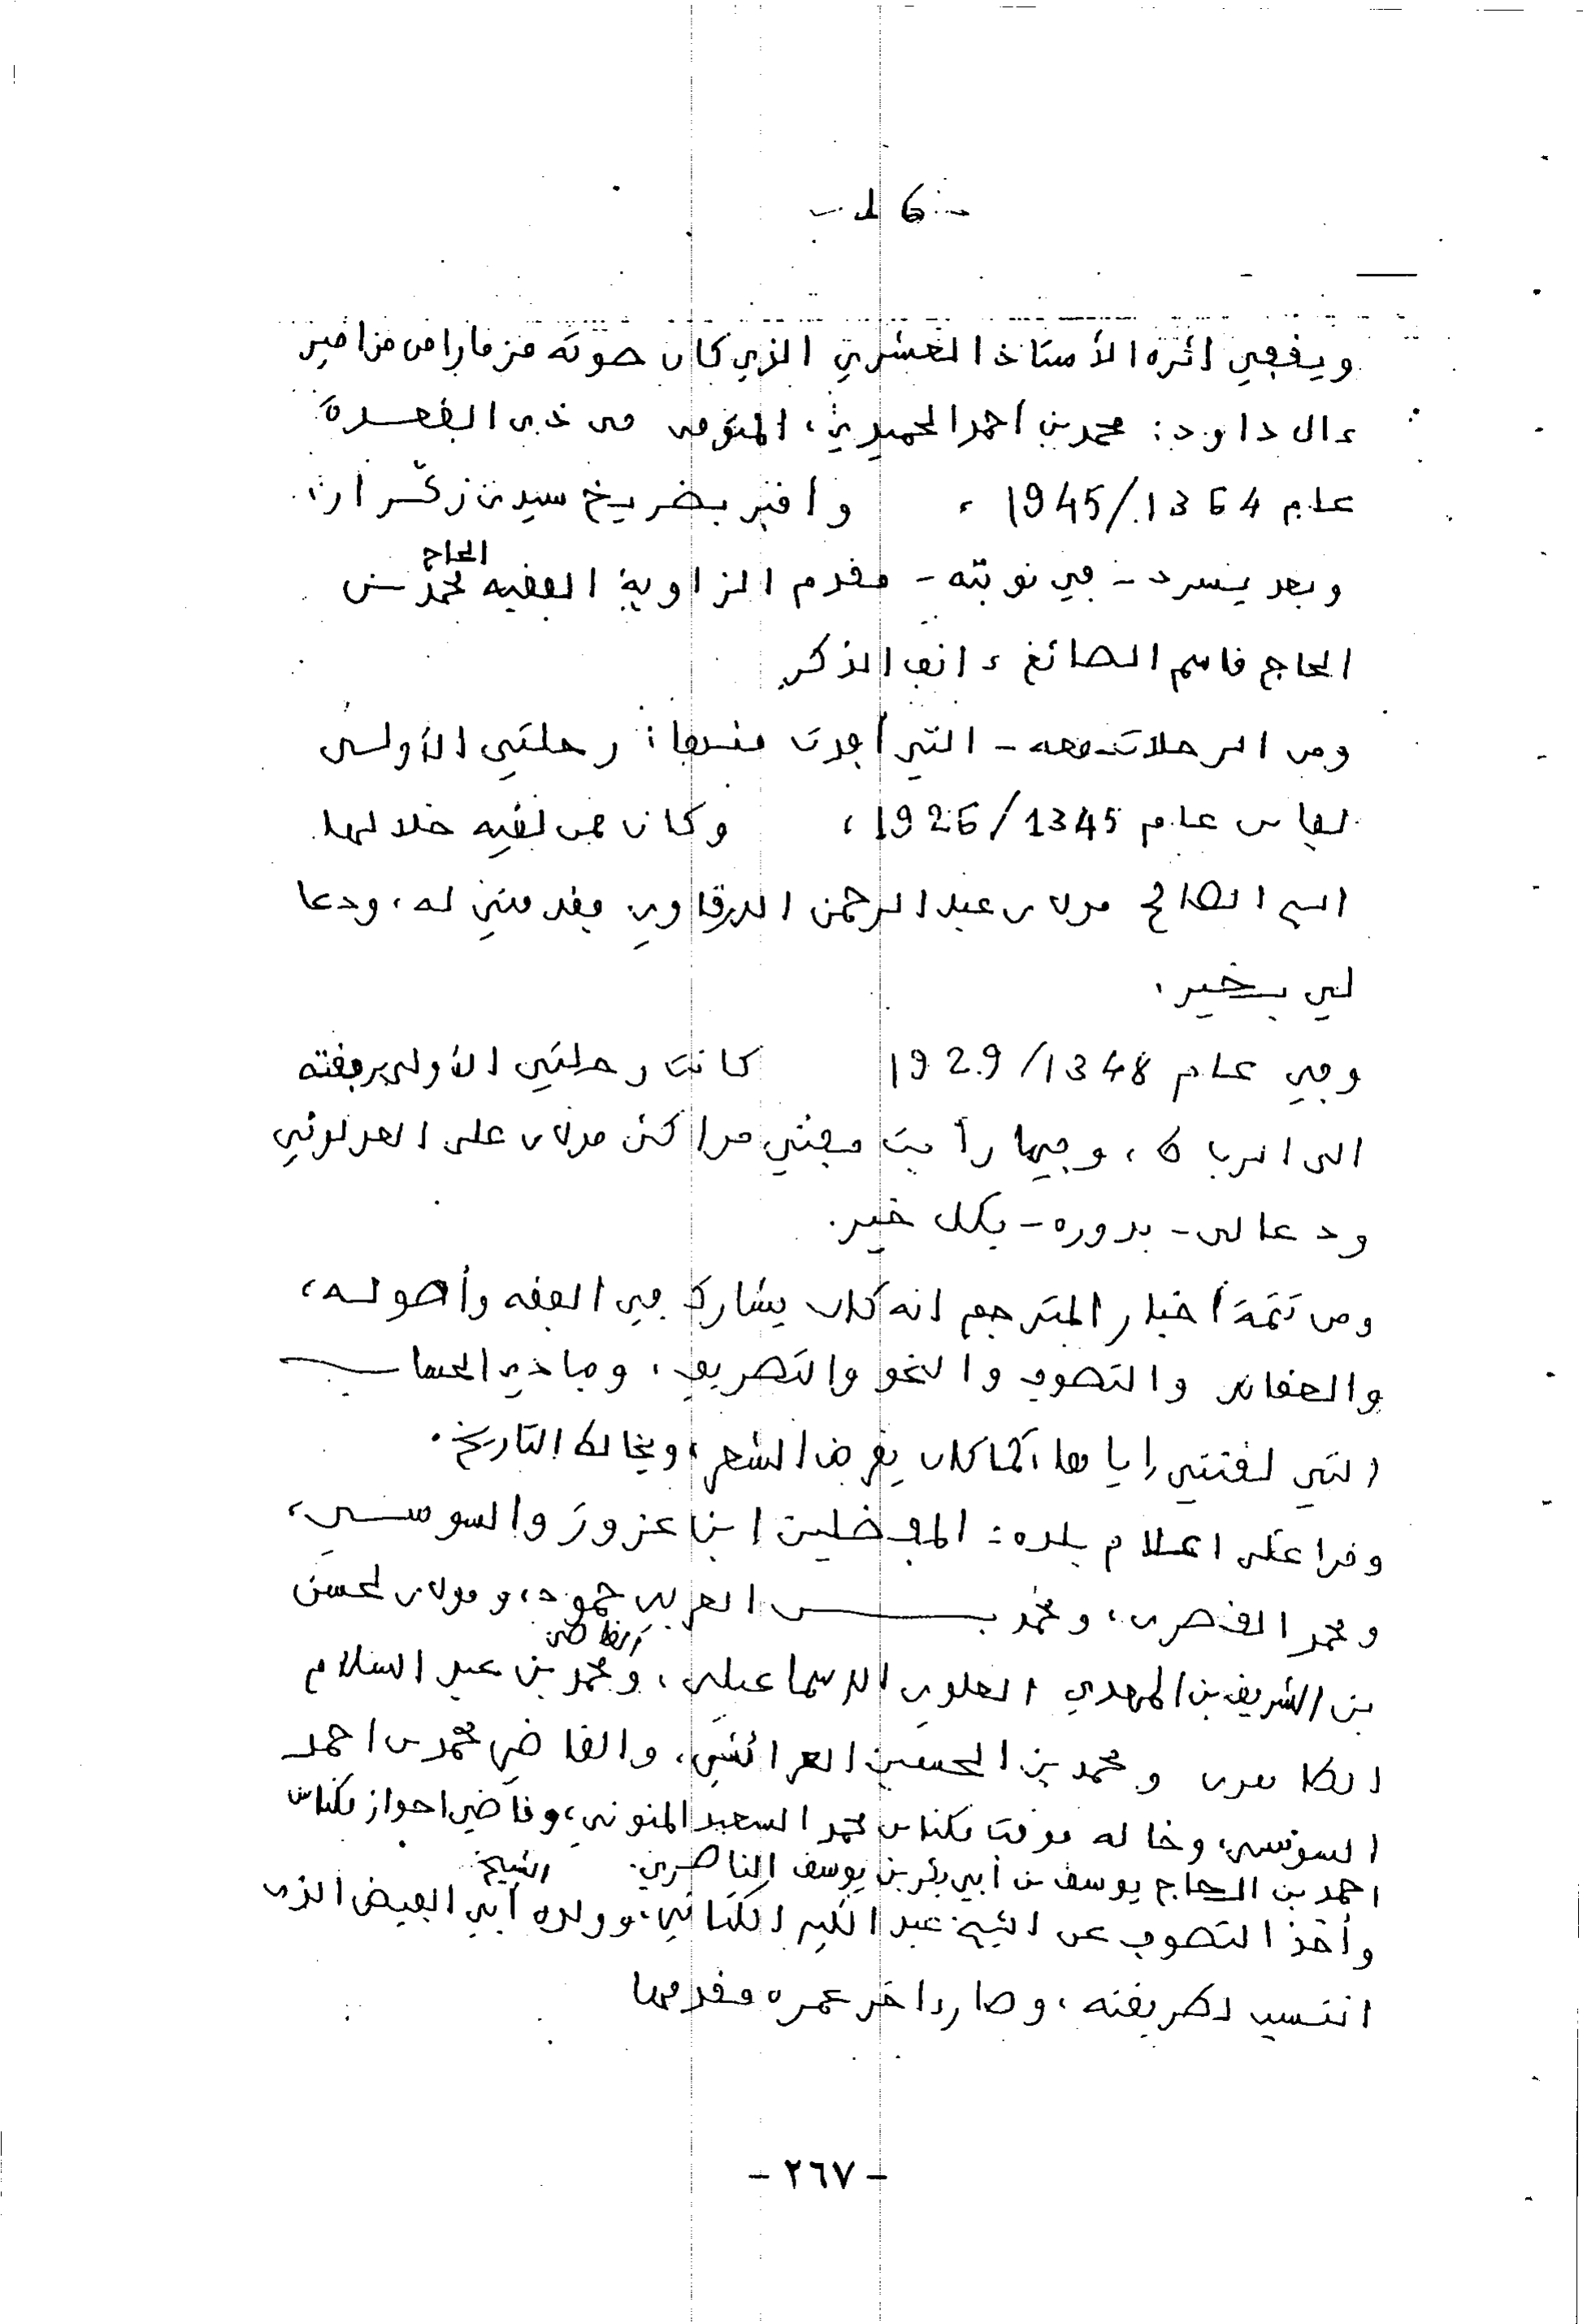 - 16 -
ويقفي اثره الأستاذ العشري الذي كان صوته مزمارا من مزامير
ءال داود: محمد بن احمد الحميدي، المتوفى في ذي القعدة
عام 1364/1945، واقبر بضريح سيدي
وبعد يسرد - في نوبته - مقدم الزاوية الفقيه الحاج محمد بن
الحاج قاسم الصائغ ءانف الذكر
ومن الرحلات معه - التي أفدت منها: رحلتي الأولى
لفاس عام 1345/1926، وكان ممن لقيه خلالها
الصالح مولاي عبد الرحمن الدرقاوي فقدمني له، ودعا
لي بخير،
وفي عام 1348/1929 كانت رحلتي الأولى برفقته
الى الرباط، وفيها رأيت مفتي مراكش مولاي علي العدلوني
ودعا لي - بدوره - بكل خير.
ومن تتمة أخبار المترجم انه كان يشارك في الفقه وأصوله،
والعقائد والتصوف والنحو والتصريف، ومبادئ الحساب
التي لقنني إياها، كما كان يقرض الشعر، ويخالط التاريخ.
وقرا على اعلام بلده: المفضلين ابن عزوز والسوسي،
ومحمد القصري، ومحمد بن العربي حمود، ومولاي لحسن
بن الشريف بن المهدي العلوي الاسماعيلي، والقاضي محمد بن عبد السلام
الطاهري ومحمد بن الحسين العرائشي، والقاضي محمد بن احمد
السوسي، وخاله موقت مكناس محمد السعيد المنوني، وقاضي احواز مكناس
احمد بن الحاج يوسف بن أبي بكر بن يوسف الناصري.
وأخذ التصوف عن الشيخ عبد الكبير الكتاني، وولده الشيخ أبي الفيض الذي
انتسب لطريقته، وصار ءاخر عمره مقدمها
- ٢٦٧ -